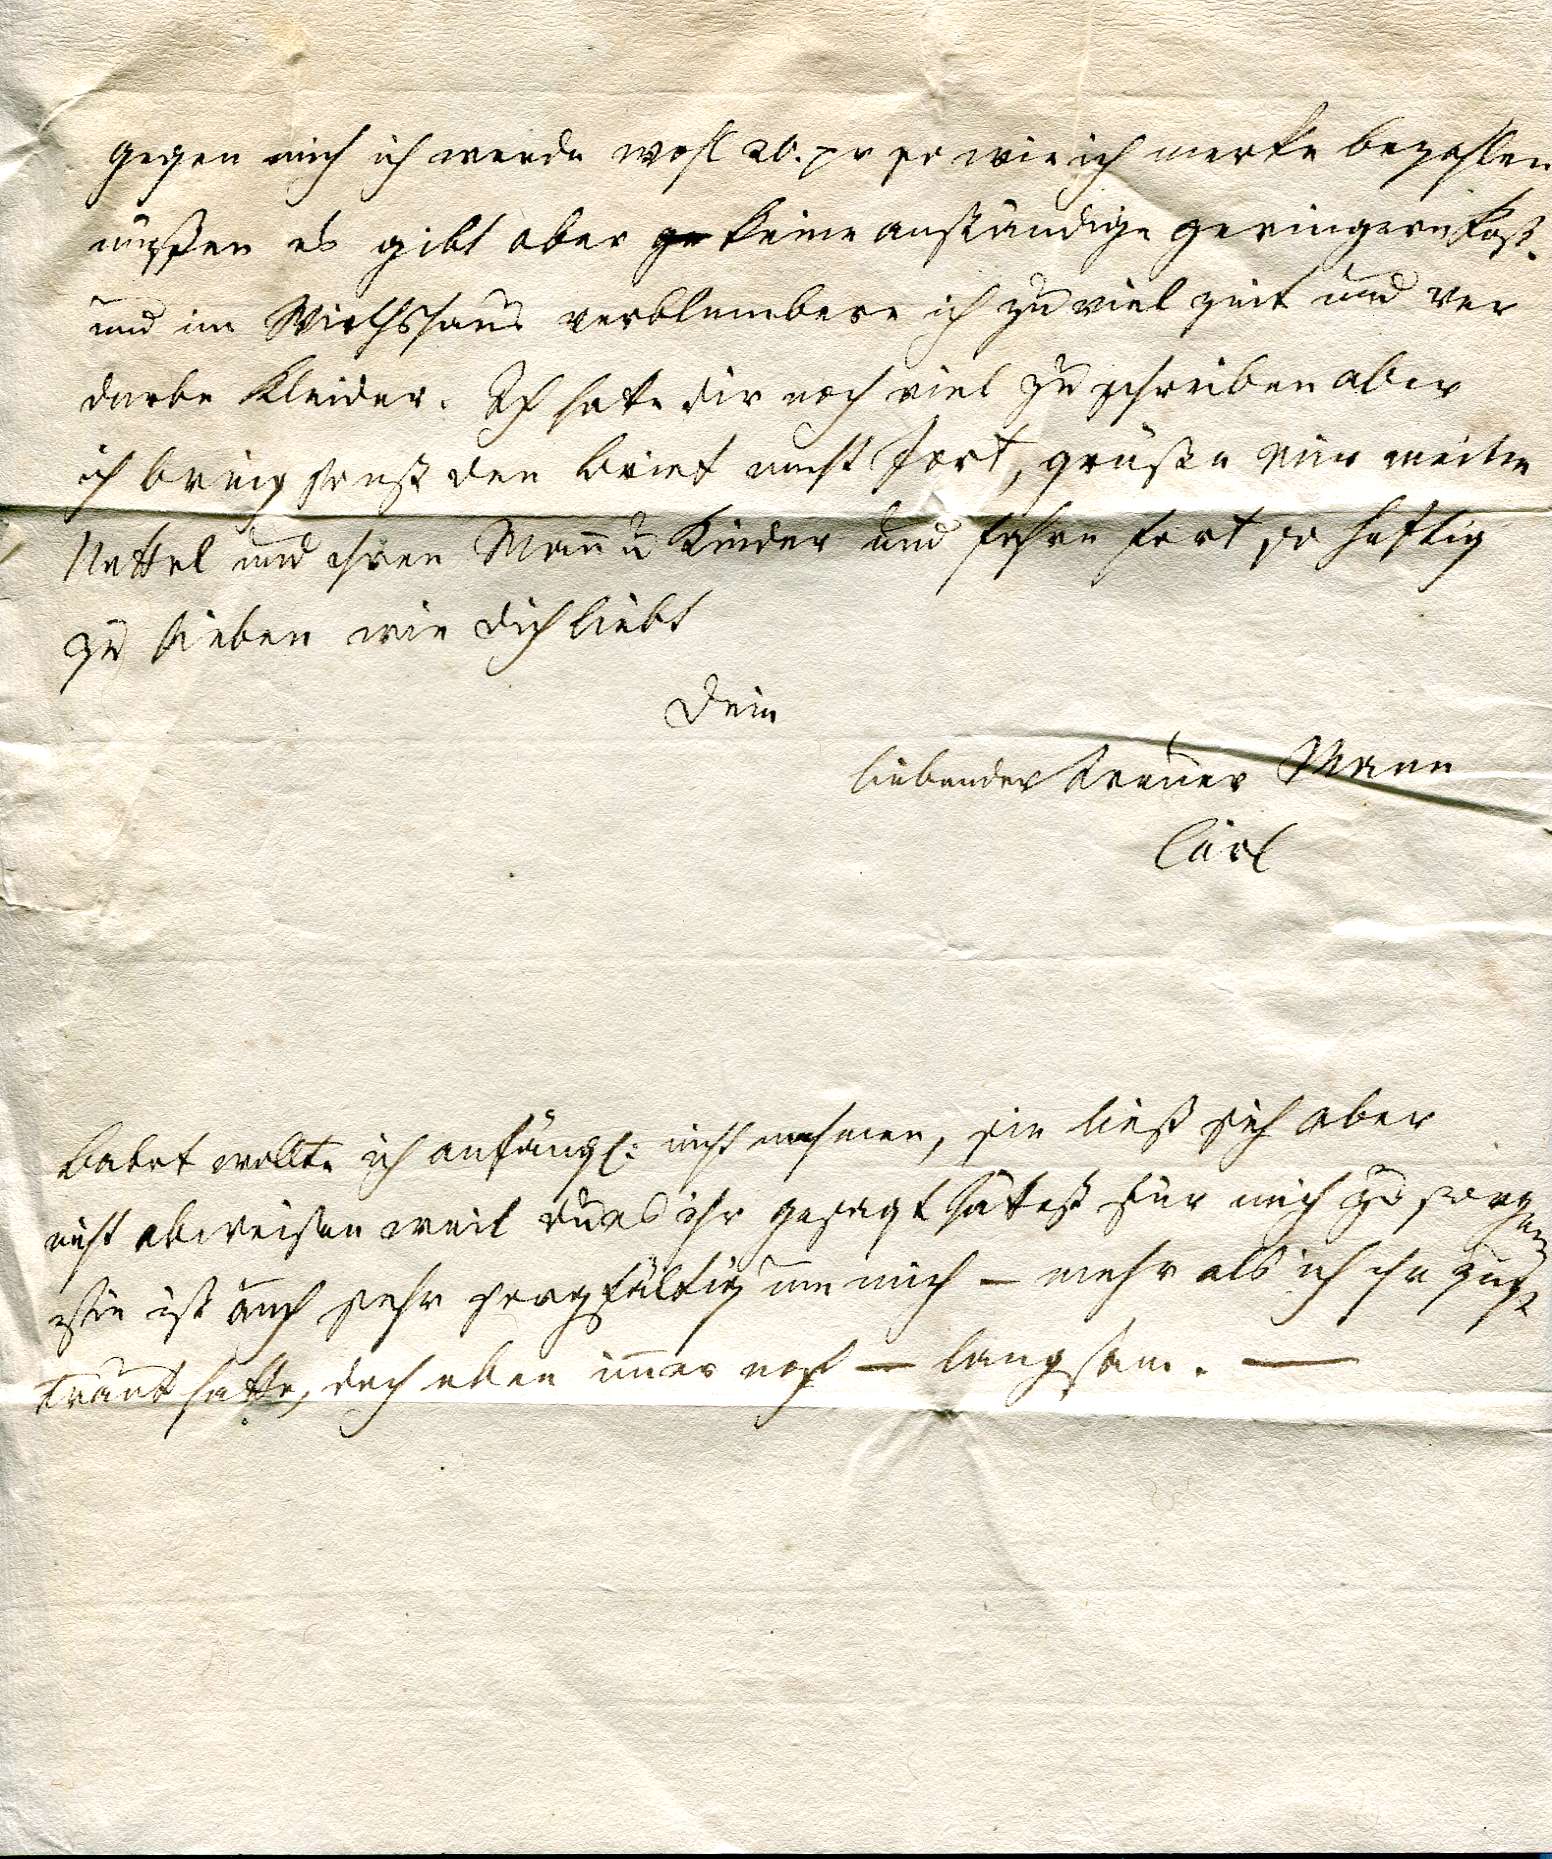 gegen mich ich werde wohl 20. xr so wie ich merke bezahlen
müßen es gibt aber keine anständige geringere Kost.
und im Wirthshaus verblembere ich zu viel Zeit und ver
darbe Kleider. Ich hätte dir noch viel zu schreiben aber
ich bring sonst den Brief nicht fort, grüße mir meine
Nettel und ihren Mann u Kinder und fahre fort so heftig
zu lieben wie dich liebt
Dein
liebender treuer Mann
Carl
Babet wollte ich anfängl: nicht nehmen, sie ließ sich aber
nicht abweisen weil du es ihr gesagt hätest für mich zu sorgen
Sie ist auch sehr sorgfältig um mich – mehr als ich ihr zuge
traut hatte, doch eben immer noch — langsam. —